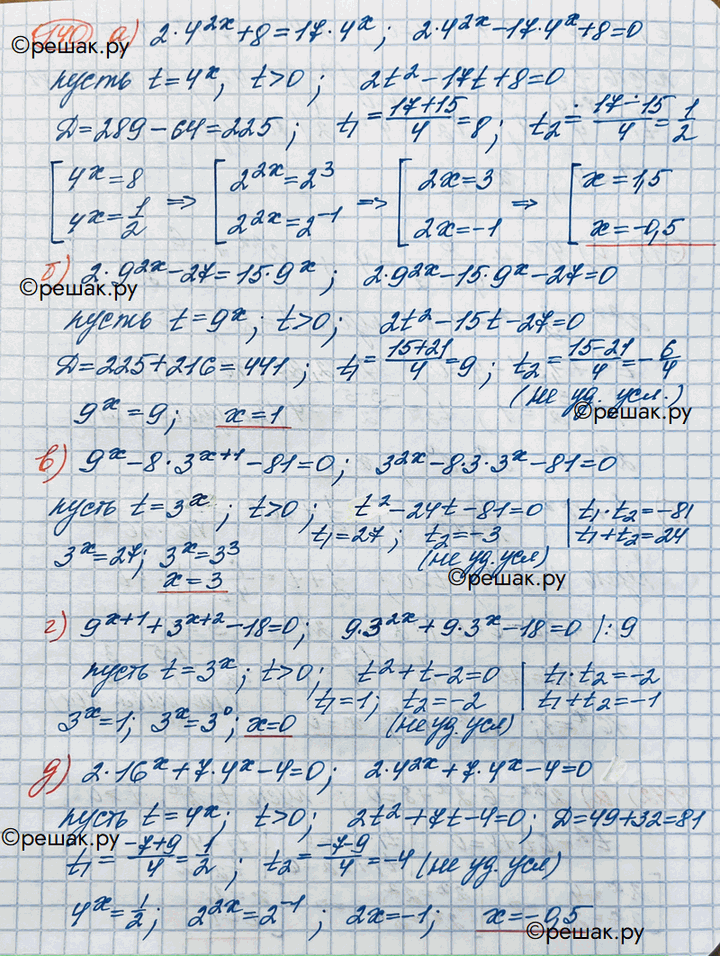 140 а) 2·4^{2x}+8=17·4^x; 2·4^{2x}-17·4^x+8=0
©решак.ру
пусть t=4^x, t>0; 2t²-17t+8=0
Д=289-64=225; t₁=\frac{17+15}{4}=8; t₂=\frac{17-15}{4}=\frac{1}{2}
[4^x=8 => [2^{2x}=2^3 => [2x=3 => [x=1,5
4^x=\frac{1}{2} 2^{2x}=2^{-1} 2x=-1 x=-0,5
б) 2·9^{2x}-27=15·9^x; 2·9^{2x}-15·9^x-27=0
©решак.ру
пусть t=9^x; t>0; 2t²-15t-27=0
Д=225+216=441; t₁=\frac{15+21}{4}=9; t₂=\frac{15-21}{4}=-\frac{6}{4}
(не уд. усл.)
©решак.ру
9^x=9; x=1
в) 9^x-8·3^{x+1}-81=0; 3^{2x}-8·3·3^x-81=0
пусть t=3^x; t>0; t²-24t-81=0 | t₁·t₂=-81
t₁=27; t₂=-3 | t₁+t₂=24
3^x=27; 3^x=3^3 (не уд. усл)
x=3 ©решак.ру
г) 9^{x+1}+3^{x+2}-18=0; 9·3^{2x}+9·3^x-18=0 |:9
пусть t=3^x; t>0; t²+t-2=0 | t₁·t₂=-2
t₁=1; t₂=-2 | t₁+t₂=-1
3^x=1; 3^x=3^0; x=0 (не уд. усл)
д) 2·16^x+7·4^x-4=0; 2·4^{2x}+7·4^x-4=0
пусть t=4^x; t>0; 2t²+7t-4=0; Д=49+32=81
©решак.ру
t₁=\frac{-7+9}{4}=\frac{1}{2}; t₂=\frac{-7-9}{4}=-4 (не уд. усл)
4^x=\frac{1}{2}; 2^{2x}=2^{-1}; 2x=-1; x=-0,5
©решак.ру